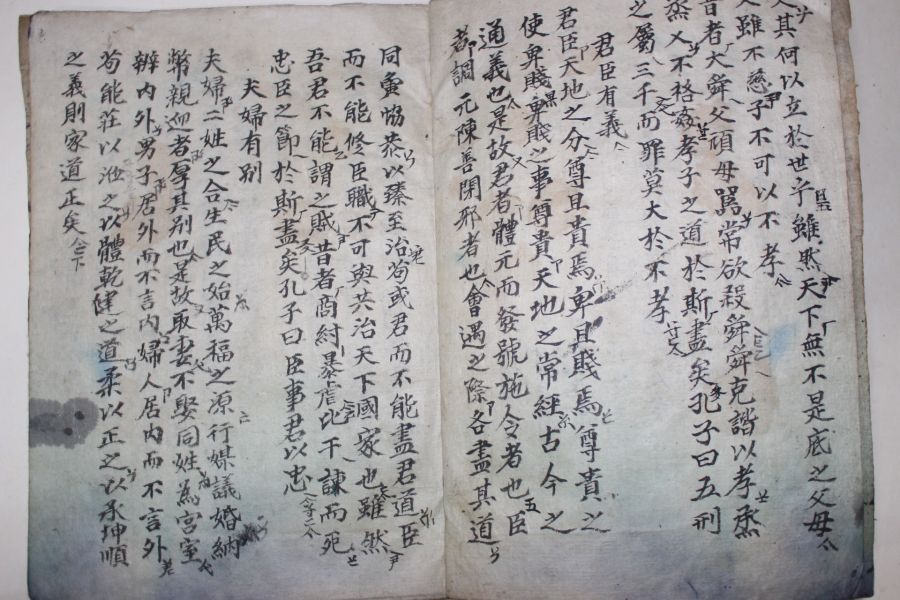 其何以立於世乎雖然天下無不是底之父母
雖不慈子不可以不孝
昔者大舜父頑母嚚常欲殺舜舜克諧以孝烝
烝乂不格姦孝子之道於斯盡矣孔子曰五刑
之屬三千而罪莫大於不孝
君臣有義
君臣天地之分尊且貴焉卑且賤焉尊貴之
使卑賤卑賤之事尊貴天地之常經古今之
通義也是故君者體元而發號施令者也臣
者調元陳善閉邪者也會遇之際各盡其道
同寅協恭以臻至治苟或君而不能盡君道臣
而不能修臣職不可與共治天下國家也雖然
吾君不能謂之賊昔者商紂暴虐比干諫而死
忠臣之節於斯盡矣孔子曰臣事君以忠
夫婦有別
夫婦二姓之合生民之始萬福之源行媒議婚納
幣親迎者厚其別也是故取妻不娶同姓為宮室
辨內外男子居外而不言內婦人居內而不言外
苟能莊以涖之以體乾健之道柔以正之以承坤順
之義則家道正矣